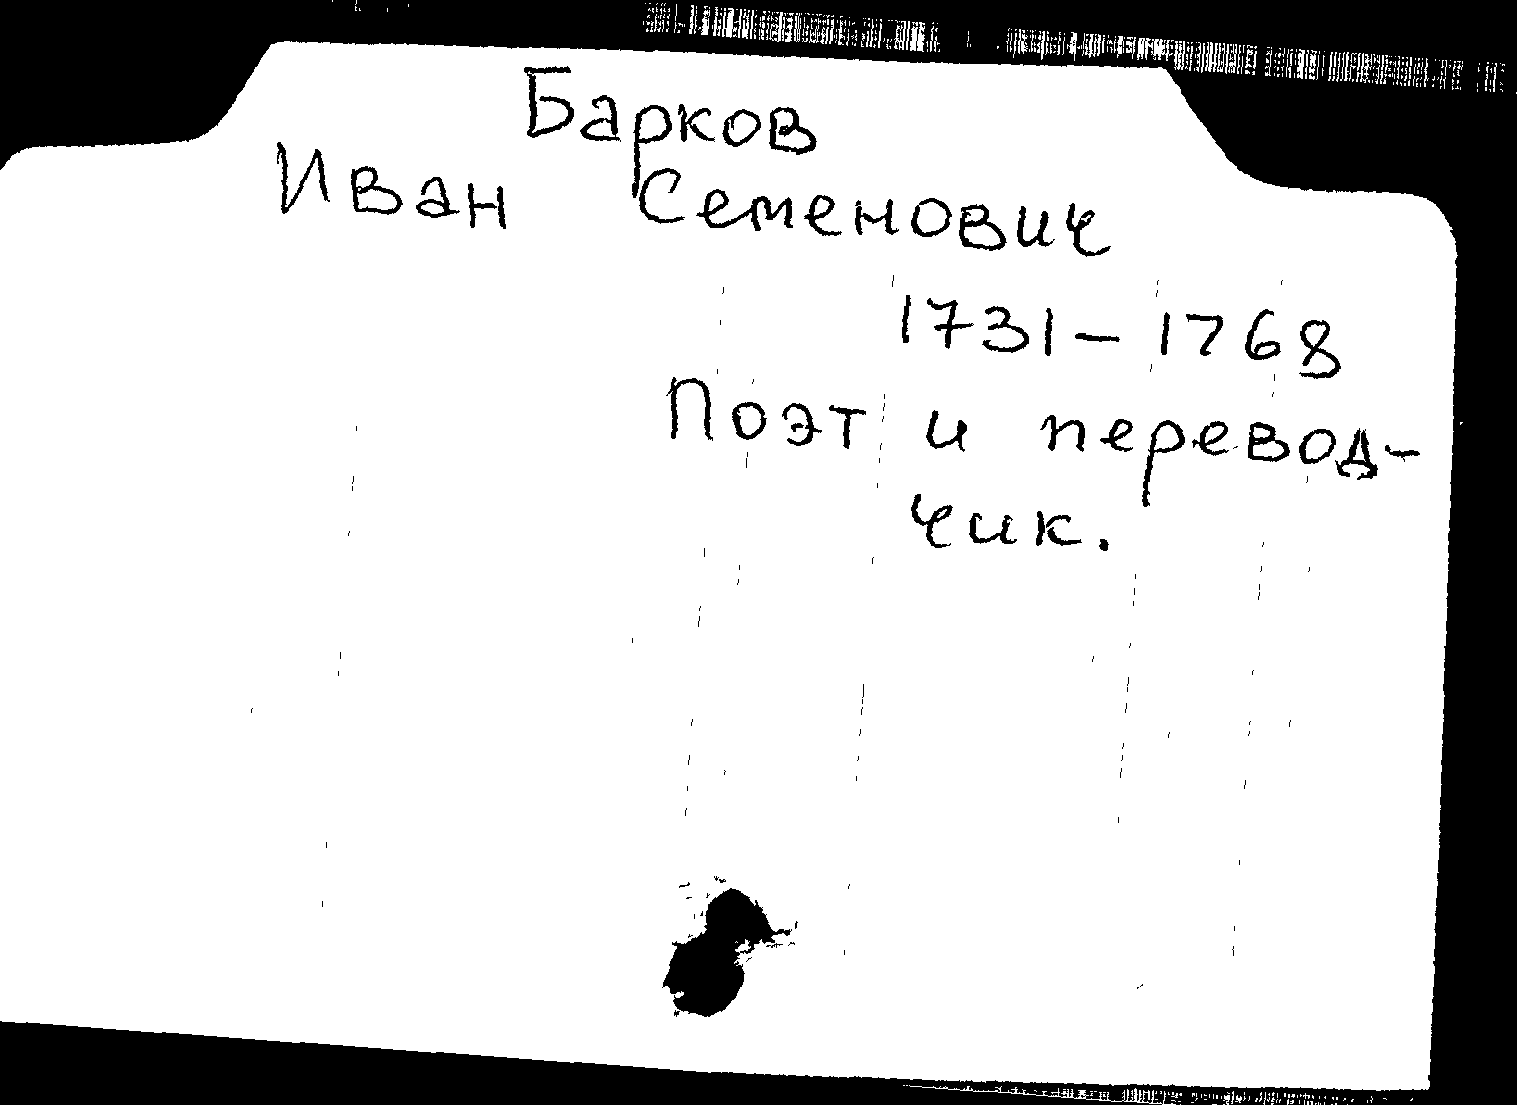 Барков
Иван Семенович
1731-1768
Поэт и перевод-
чик.